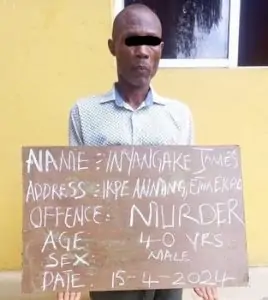 NAME: INYANGAKE JAMES
ADDRESS: IKPE ANNANG, ESSIEN EKPE
OFFENCE: MURDER
AGE: 40 YRS
SEX: MALE
DATE: 15-4-2024